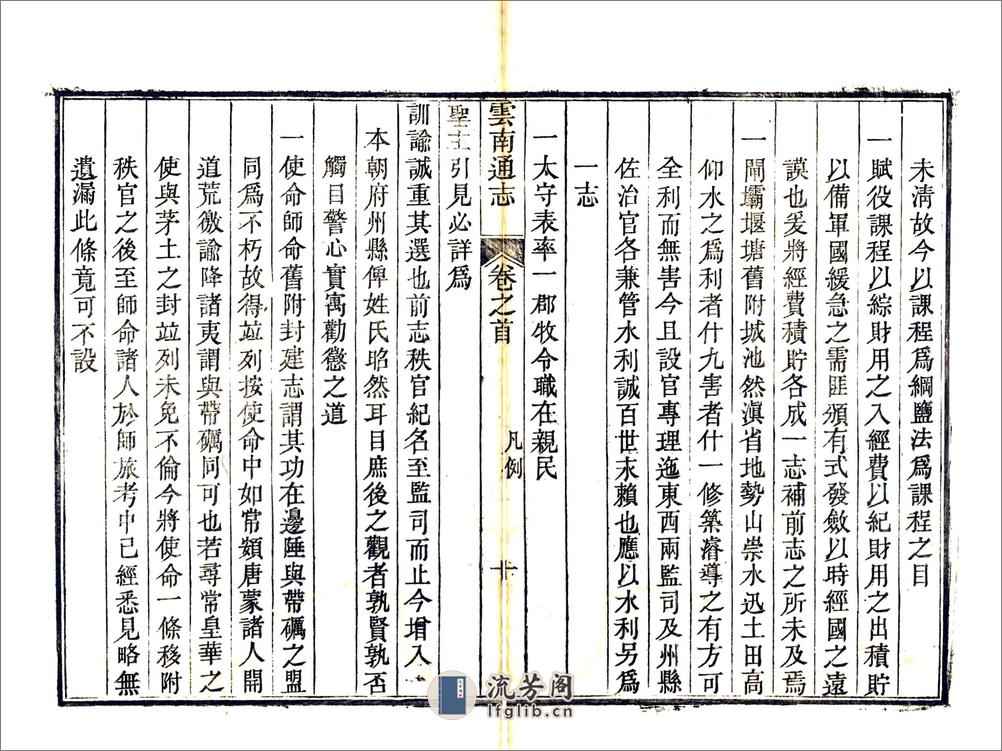 未淸故今以課程爲綱鹽法爲課程之目
一賦役課程以綜財用之入經費以紀財用之出積貯
以備軍國緩急之需匪頒有式發斂以時經國之遠
謨也爰將經費積貯各成一志補前志之所未及焉
一閘壩堰塘舊附城池然滇省地勢山崇水迅土田高
仰水之爲利者什九害者什一修築濬導之有方可
全利而無害今且設官專理迤東西兩監司及州縣
佐治官各兼管水利誠百世永賴也應以水利另爲
一志
一太守表率一郡牧令職在親民
雲南通志 卷之首 凡例 十
聖主引見必詳爲
訓諭誠重其選也前志秩官紀名至監司而止今增入
本朝府州縣俾姓氏昭然耳目庶後之觀者孰賢孰否
觸目警心實寓勸懲之道
一使命師命舊附封建志謂其功在邊陲與帶礪之盟
同爲不朽故得竝列按使命中如常頞唐蒙諸人開
道荒徼諭降諸夷謂與帶礪同可也若尋常皇華之
使與茅土之封竝列未免不倫今將使命一條移附
秩官之後至師命諸人於師旅考中已經悉見略無
遺漏此條竟可不設
流芳阁
lfglib.cn